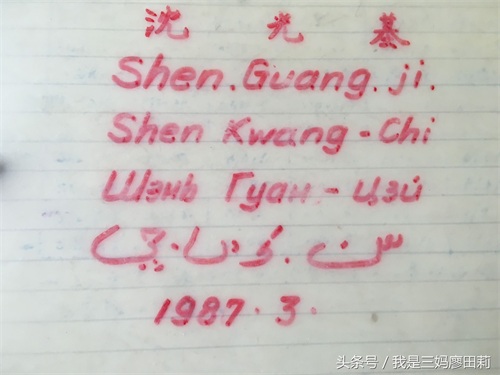 沈 光 基
Shen. Guang. ji.
Shen Kwang - Chi
Шэнь Гуан - цзй
1987 . 3 .
头条号 / 我是三妈廖田莉